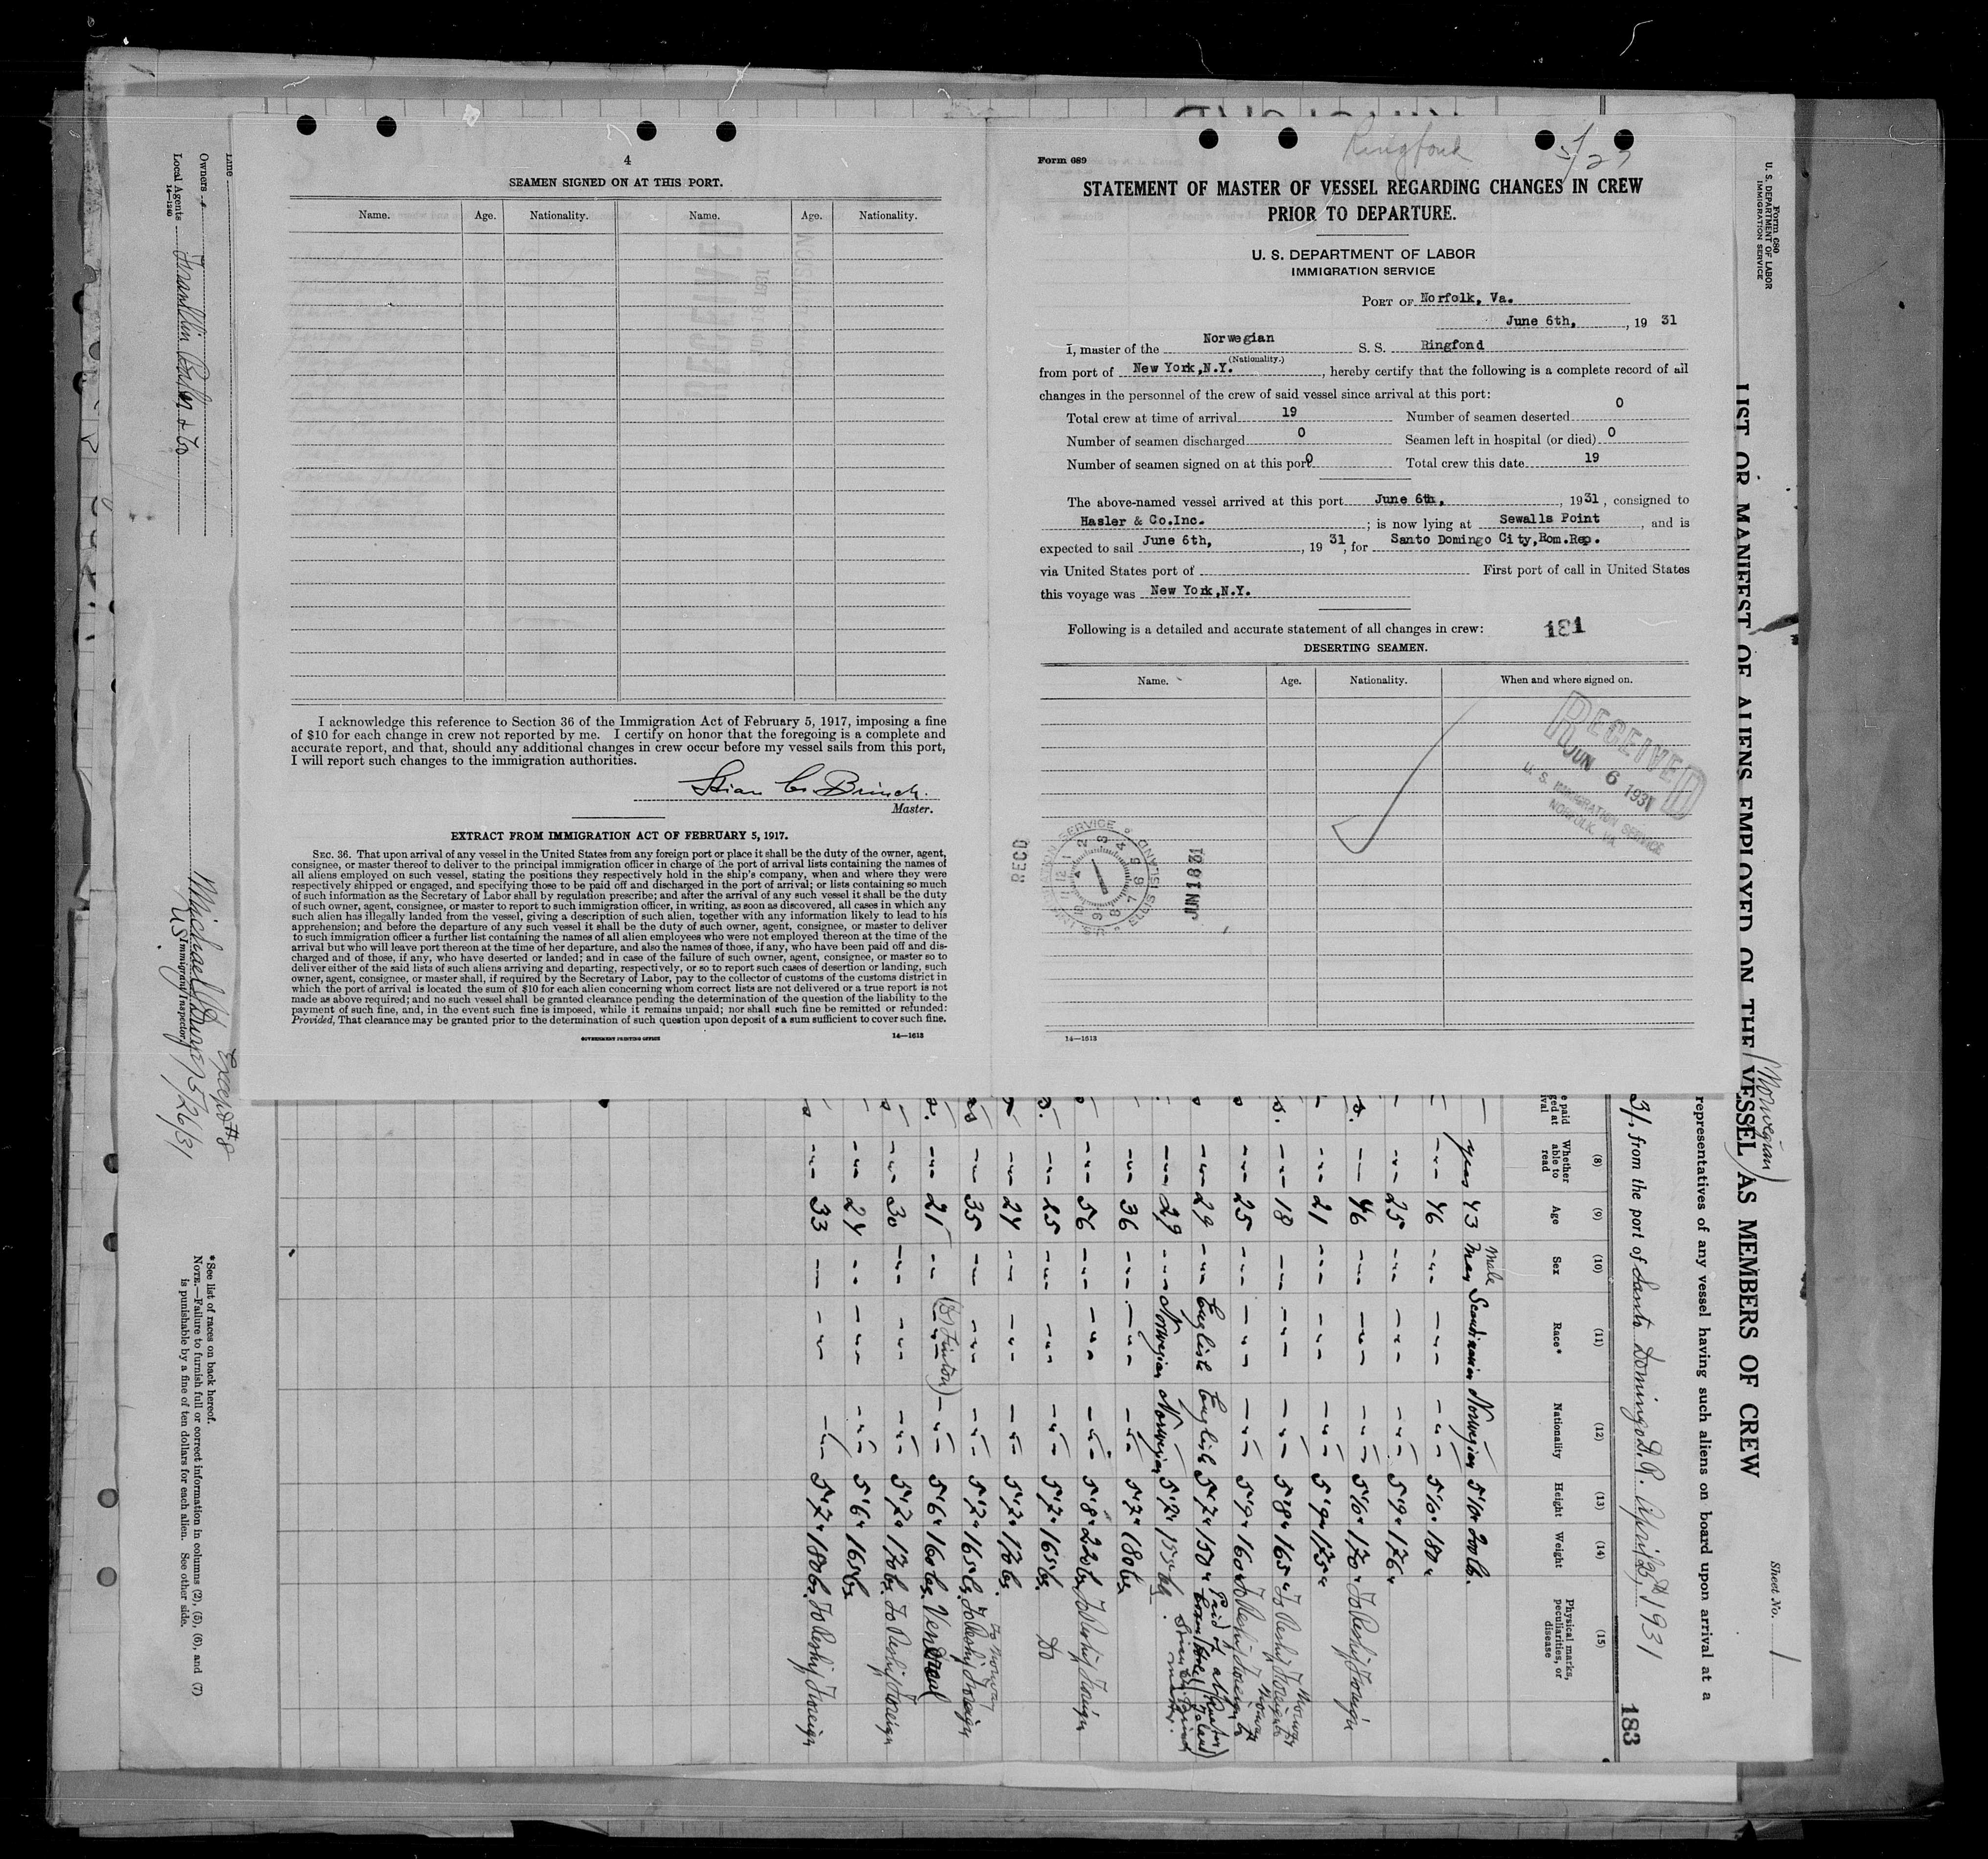 4
SEAMEN SIGNED ON AT THIS PORT.
Name. Age. Nationality. Name. Age. Nationality.
I acknowledge this reference to Section 36 of the Immigration Act of February 5, 1917, imposing a fine
of $10 for each change in crew not reported by me. I certify on honor that the foregoing is a complete and
accurate report, and that, should any additional changes in crew occur before my vessel sails from this port,
I will report such changes to the immigration authorities.
Brinch.
Master.
EXTRACT FROM IMMIGRATION ACT OF FEBRUARY 5, 1917.
SEC. 36. That upon arrival of any vessel in the United States from any foreign port or place it shall be the duty of the owner, agent,
consignee, or master thereof to deliver to the principal immigration officer in charge of the port of arrival lists containing the names of
all aliens employed on such vessel, stating the positions they respectively hold in the ship's company, when and where they were
respectively shipped or engaged, and specifying those to be paid off and discharged in the port of arrival; or lists containing so much
of such information as the Secretary of Labor shall by regulation prescribe; and after the arrival of any such vessel it shall be the duty
of such owner, agent, consignee, or master to report to such immigration officer, in writing, as soon as discovered, all cases in which any
such alien has illegally landed from the vessel, giving a description of such alien, together with any information likely to lead to his
apprehension; and before the departure of any such vessel it shall be the duty of such owner, agent, consignee, or master to deliver
to such immigration officer a further list containing the names of all alien employees who were not employed thereon at the time of the
arrival but who will leave port thereon at the time of her departure, and also the names of those, if any, who have been paid off and dis-
charged and of those, if any, who have deserted or landed; and in case of the failure of such owner, agent, consignee, or master so to
deliver either of the said lists of such aliens arriving and departing, respectively, or so to report such cases of desertion or landing, such
owner, agent, consignee, or master shall, if required by the Secretary of Labor, pay to the collector of customs of the customs district in
which the port of arrival is located the sum of $10 for each alien concerning whom correct lists are not delivered or a true report is not
made as above required; and no such vessel shall be granted clearance pending the determination of the question of the liability to the
payment of such fine, and, in the event such fine is imposed, while it remains unpaid; nor shall such fine be remitted or refunded:
Provided, That clearance may be granted prior to the determination of such question upon deposit of a sum sufficient to cover such fine.
GOVERNMENT PRINTING OFFICE 14—1613
Ringfond
Form 689
STATEMENT OF MASTER OF VESSEL REGARDING CHANGES IN CREW
PRIOR TO DEPARTURE.
U. S. DEPARTMENT OF LABOR
IMMIGRATION SERVICE
PORT OF Norfolk, Va.
June 6th, , 19 31
I, master of the Norwegian S. S. Ringfond
(Nationality.)
from port of New York,N.Y. , hereby certify that the following is a complete record of all
changes in the personnel of the crew of said vessel since arrival at this port:
Total crew at time of arrival 19 Number of seamen deserted 0
Number of seamen discharged 0 Seamen left in hospital (or died) 0
Number of seamen signed on at this port 0 Total crew this date 19
The above-named vessel arrived at this port June 6th, , 1931, consigned to
Hasler & Co.Inc. ; is now lying at Sewalls Point , and is
expected to sail June 6th, , 19 31, for Santo Domingo City,Rom.Rep.
via United States port of First port of call in United States
this voyage was New York,N.Y.
Following is a detailed and accurate statement of all changes in crew:
181
DESERTING SEAMEN.
Name. Age. Nationality. When and where signed on.
RECEIVED
JUN 6 1931
U. S. IMMIGRATION SERVICE
NORFOLK, VA
RECD
JUN 18 1931
ELLIS ISLAND
14—1613
Form 680
U. S. DEPARTMENT OF LABOR
IMMIGRATION SERVICE
Sheet No. 1
LIST OR MANIFEST OF ALIENS EMPLOYED ON THE VESSEL AS MEMBERS OF CREW
(Norwegian)
representatives of any vessel having such aliens on board upon arrival at a
31, from the port of Santo Domingo D.R. April 23th 1931
183
(8) (9) (10) (11) (12) (13) (14) (15)
Whether able to read Age Sex Race* Nationality Height Weight Physical marks, peculiarities, or disease
yes 43 Male Scandinavian Norwegian 5'10" 200 lb.
46 5'10" 180"
25 5'9" 176"
46 5'10" 170" To Reship Foreign
21 5'9" 175"
18 5'8" 165" To Reship Foreign
25 5'9" 160 To Reship Foreign
29 English English 5'7" 150"
29 Norwegian Norwegian 5'2" 155
36 5'7" 180
56 5'8" 220 To Reship Foreign
25 5'7" 165 Do
24 5'7" 170
35 5'7" 165 To Reship Foreign
21 5'6" 160
30 5'7" 170 To Reship Foreign
24 5'6" 165
33 5'7" 180 To Reship Foreign
Line
Owners
Local Agents Franklin Baker & Co
14—1240
Except #8
5/26/31
U S Immigrant Inspector.
*See list of races on back hereof.
NOTE.—Failure to furnish full or correct information in columns (2), (5), (6), and (7)
is punishable by a fine of ten dollars for each alien. See other side.